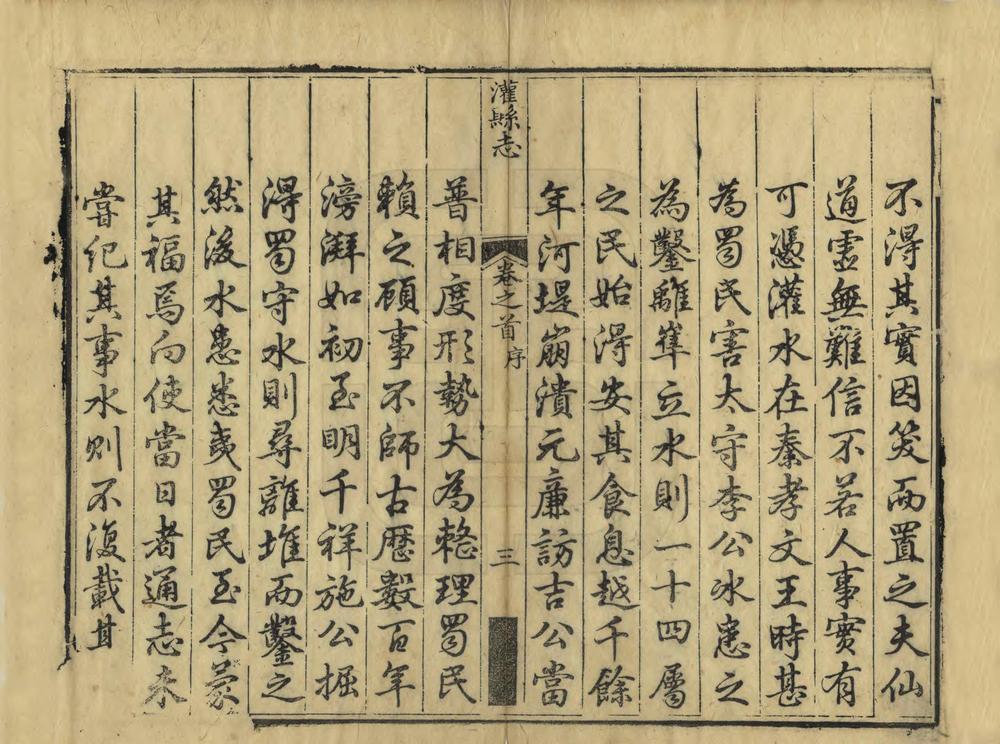 不得其實因笑而置之夫仙
道虛無難信不若人事實有
可憑灌水在秦孝文王時甚
為蜀民害太守李公冰患之
為鑿離䧳立水則一十四屬
之民始得安其食息越千餘
年河堤崩潰元廉訪吉公當
灌縣志
卷之首序
三
普相度形勢大為整理蜀民
賴之顧事不師古歷數百年
滂湃如初至明千祥施公掘
得蜀守水則尋離堆而鑿之
然後水患悉夷蜀民至今蒙
其福焉向使當日者通志未
嘗紀其事水則不復載其